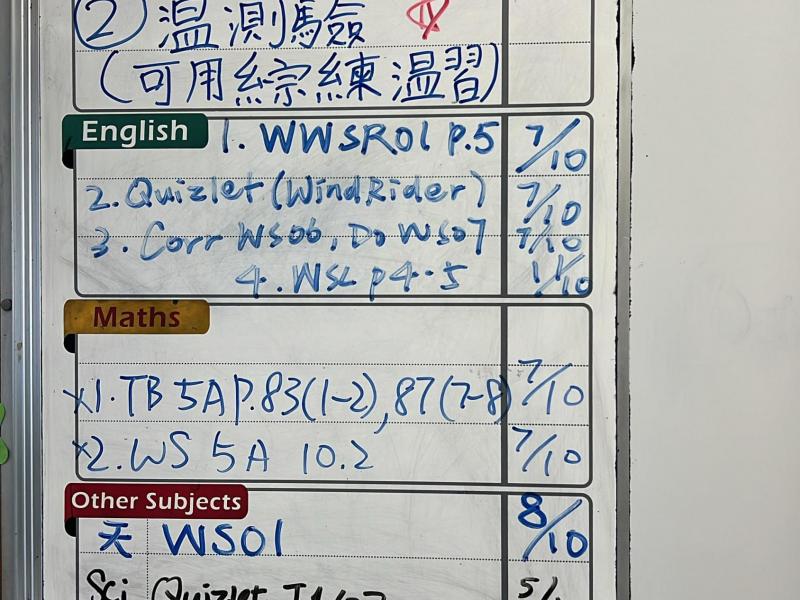 ② 温測驗
(可用綜練温習)
English 1. WWSR01 p.5 7/10
2. Quizlet (WindRider) 7/10
3. Corr WS06, Do WS07 7/10
4. WSL p4-5 11/10
Maths
x1. TB 5A p.83(1-2), 87(7-8) 7/10
x2. WS 5A 10.2 7/10
Other Subjects 8/10
天 WS01
Sci Quizlet